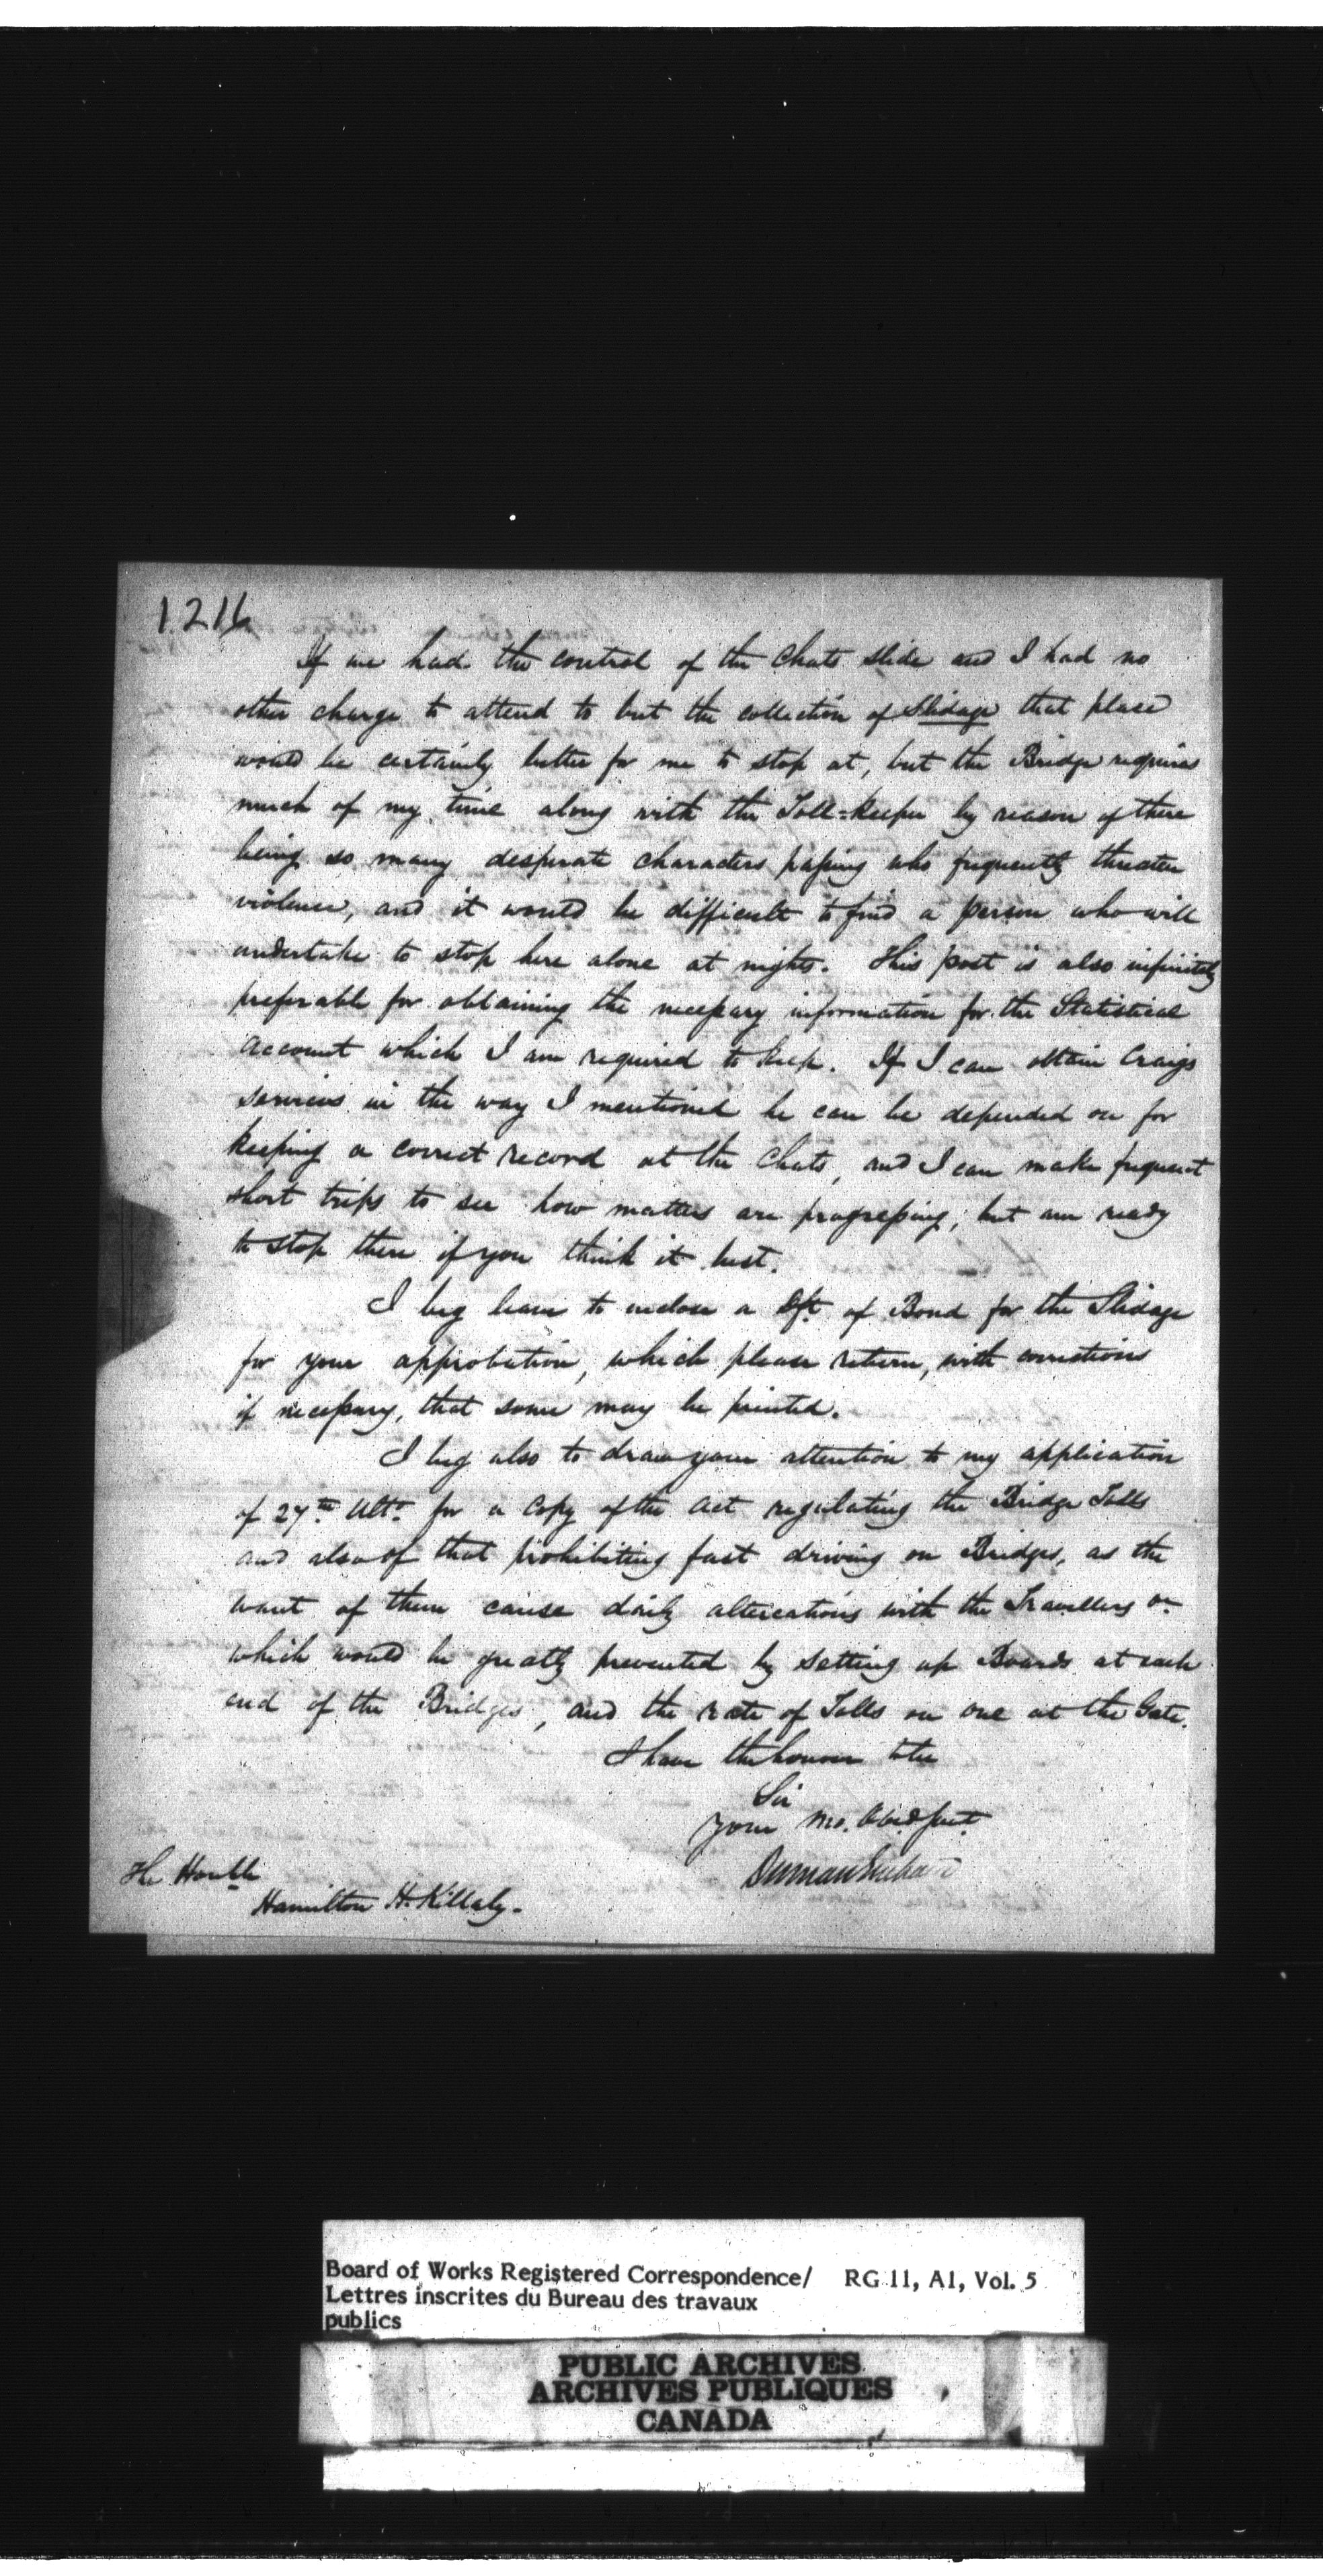 1216
If we had the control of the Chats Slide and I had no
other charge to attend to but the collection of Slidage that place
would be certainly better for me to stop at, but the Bridge requires
much of my time along with the Toll-keeper by reason of there
being so many desperate characters passing who frequently threaten
violence, and it would be difficult to find a person who will
undertake to stop here alone at nights. This post is also infinitely
preferable for obtaining the necessary information for the Statistical
account which I am required to keep. If I can obtain Craigs
services in the way I mentioned he can be depended on for
keeping a correct record at the Chats, and I can make frequent
short trips to see how matters are progressing; but am ready
to stop there if you think it best.
I beg leave to enclose a dft of Bond for the Slidage
for your approbation, which please return, with corrections
if necessary, that some may be printed.
I beg also to draw your attention to my application
of 27th Ulto for a Copy of the Act regulating the Bridge Tolls
and also of that prohibiting fast driving on Bridges, as the
want of them cause daily altercations with the Travellers
which would be greatly prevented by setting up Boards at each
end of the Bridges, and the rate of Tolls on one at the Gate.
I have the honour to be
Sir
Your Mo. Obed Sert
The Honble
Hamilton H. Killaly.
Board of Works Registered Correspondence/ RG 11, A1, Vol. 5
Lettres inscrites du Bureau des travaux
publics
PUBLIC ARCHIVES
ARCHIVES PUBLIQUES
CANADA